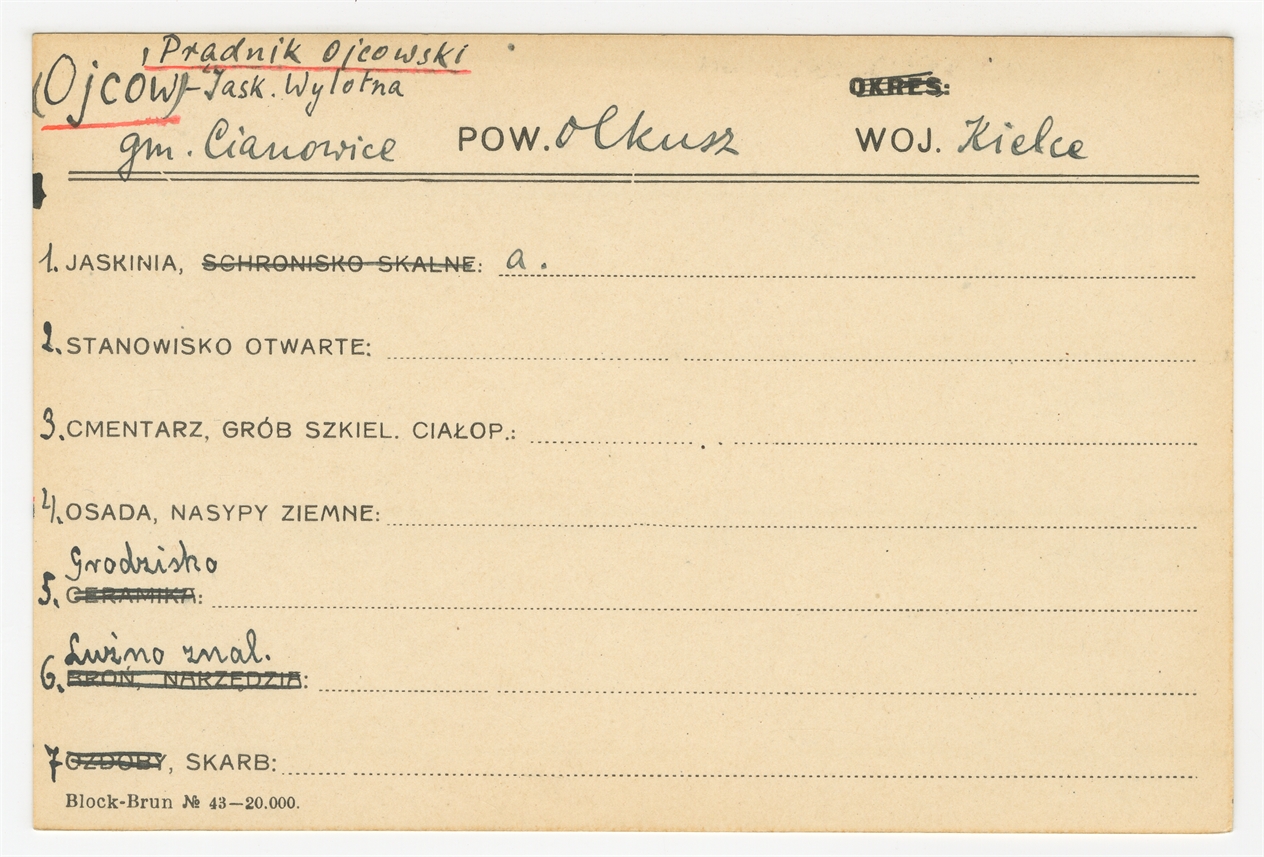 Prądnik Ojcowski
(Ojców) - Jask. Wylotna
OKRES:
gm. Cianowice POW. Olkusz WOJ. Kielce
1. JASKINIA, SCHRONISKO SKALNE: a.
2. STANOWISKO OTWARTE:
3. CMENTARZ, GRÓB SZKIEL. CIAŁOP.:
4. OSADA, NASYPY ZIEMNE:
Grodzisko
5. CERAMIKA:
Luźno znal.
6. BROŃ, NARZĘDZIA:
7 OZDOBY, SKARB:
Block-Brun № 43—20.000.